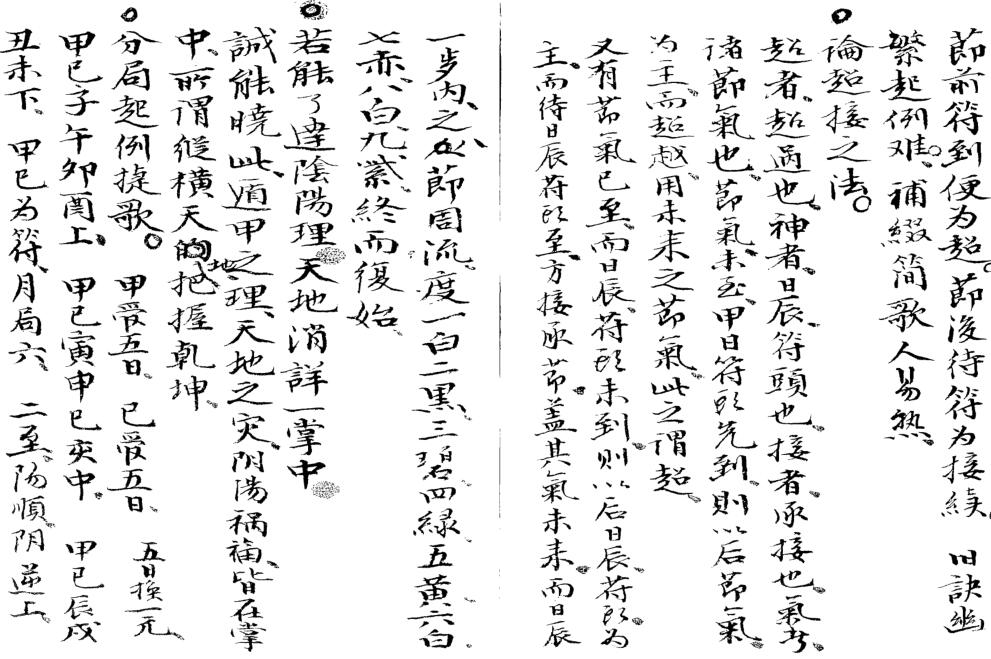 節前符到便为超。節後待符为接续。 旧訣幽
繁起例难。補綴简歌人易熟。
論超接之法。
超者、超過也、神者、日辰符頭也、接者承接也、氣者、
诸節氣也、節氣未至、甲日符頭先到、则以后節氣
为主、而超越用未来之節氣、此之谓超。
又有節氣已至、而日辰符頭未到、则以后日辰符頭为
主、而待日辰符頭至、方接承節、盖其氣未来、而日辰
一步内、之節周流、度一白二黑、三碧四緑、五黃六白
七赤、八白九紫、終而復始、
若能了達陰陽理、天地消詳一掌中
誠能曉此、遁甲之理、天地之灾、阴陽禍福、皆在掌
中、所谓縱横天地、把握乾坤、
分局起例捷歌。 甲受五日、 己受五日、 五日换一元、
甲己子午卯酉上、 甲己寅申巳亥中、 甲己辰戌
丑未下、 甲己为符、月局六、 二至陽順阴逆上、